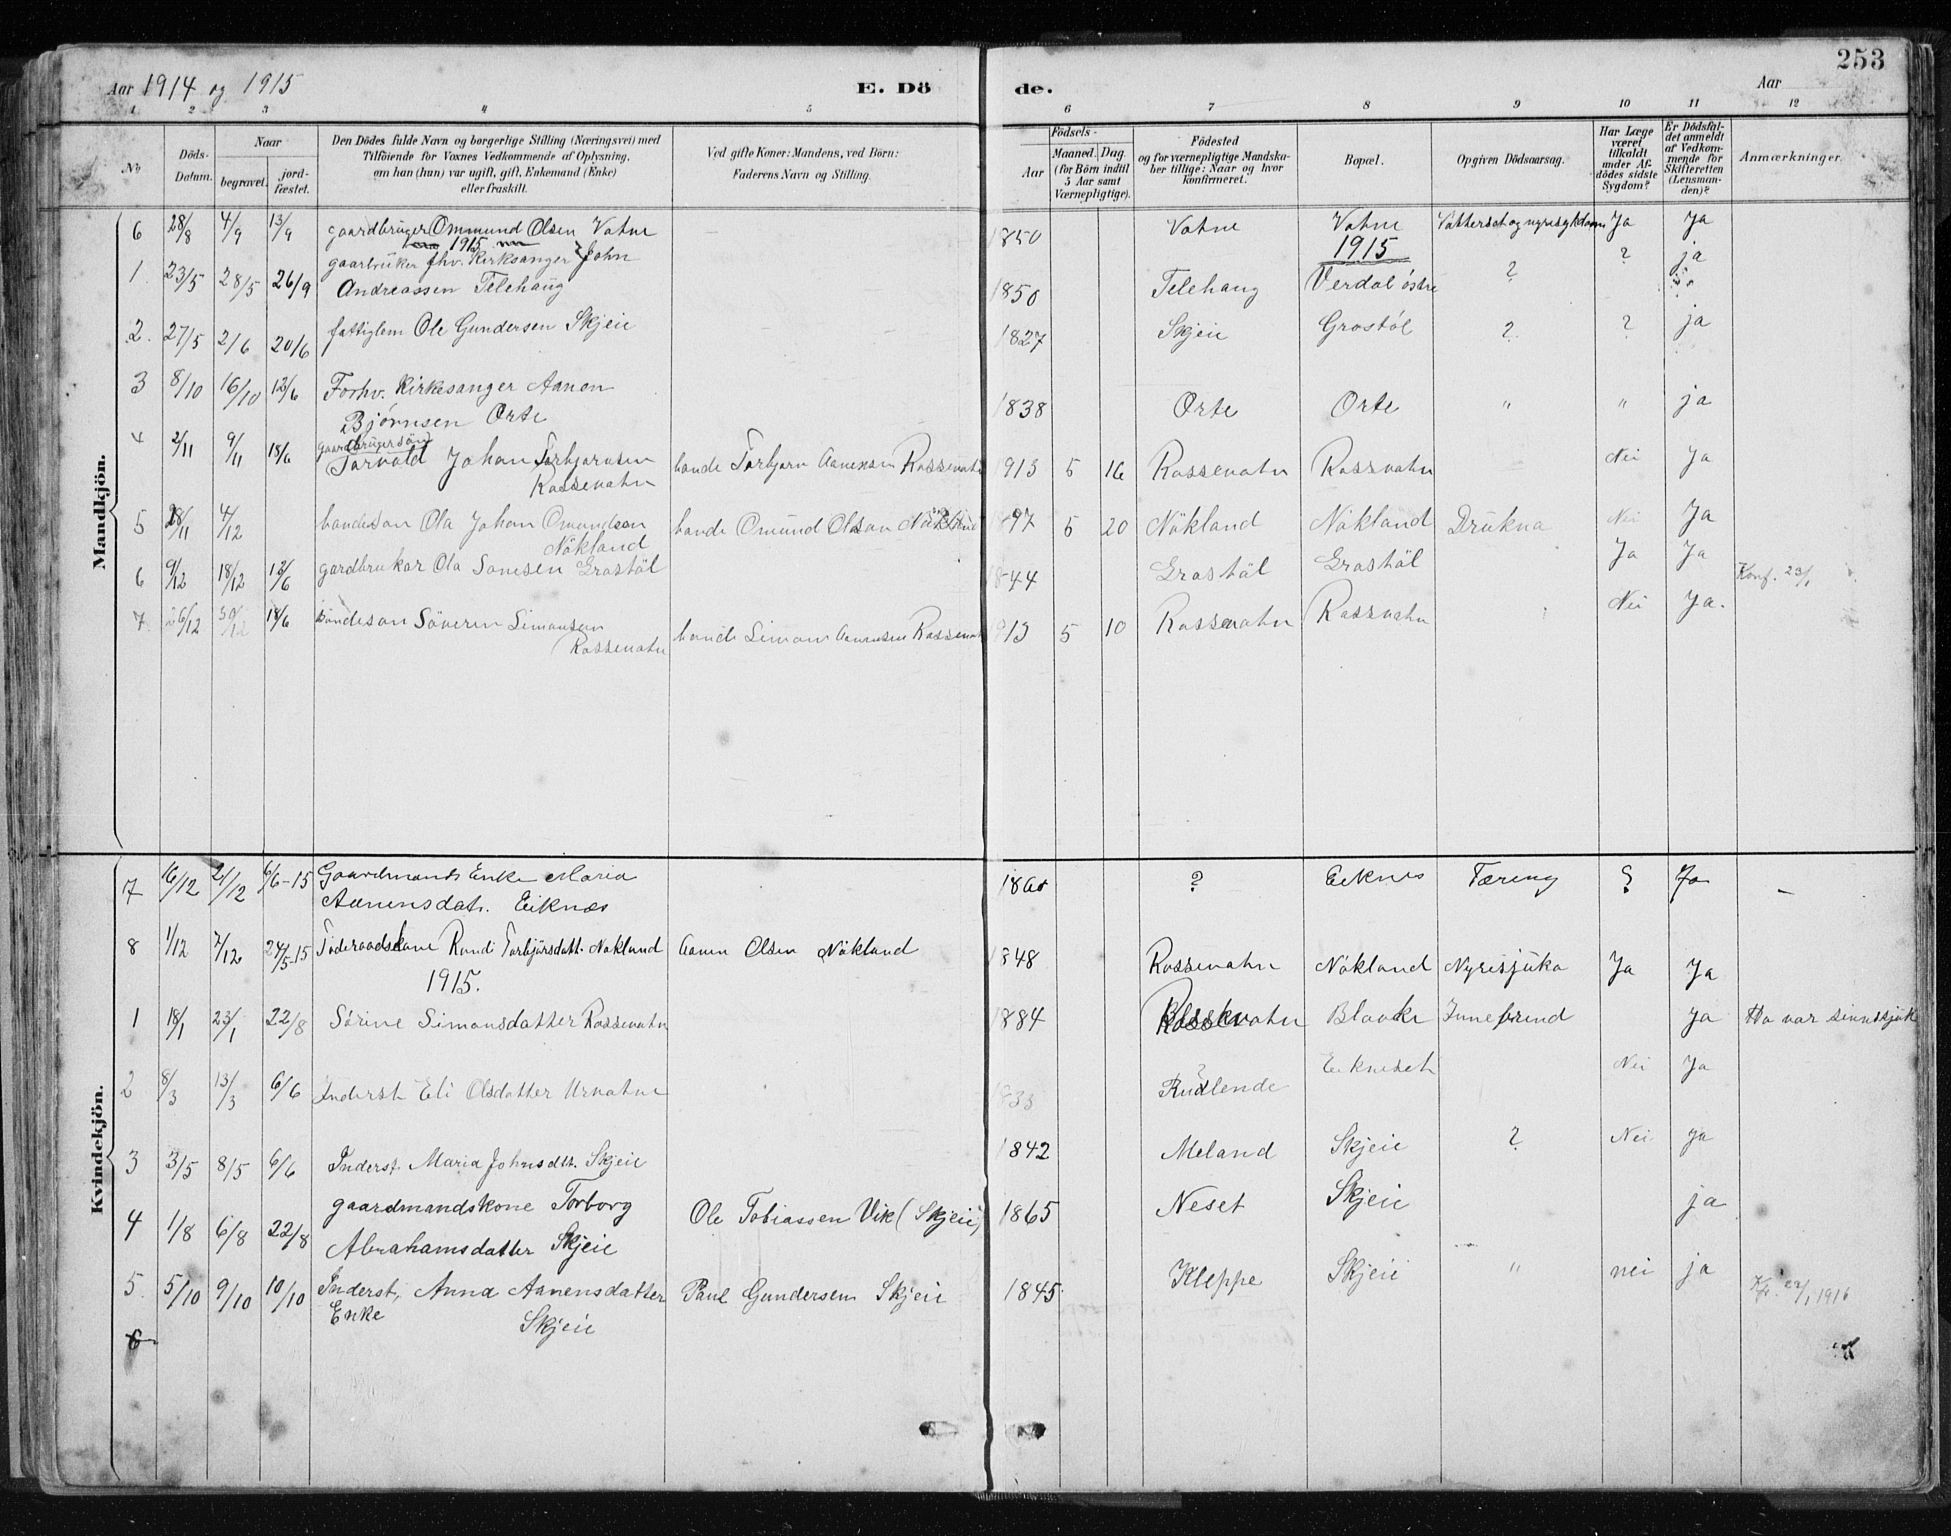 253
Aar 1914 og 1915
E. Dö de.
Aar
1 2 3 4 5 6 7 8 9 10 11 12
No
Döds-Datum.
Naar
begravet.
jordfæstet.
Den Dödes fulde Navn og borgerlige Stilling (Næringsvei) med
Tilföiende for Voxnes Vedkommende af Oplysning,
om han (hun) var ugift, gift, Enkemand (Enke)
eller fraskilt.
Ved gifte Koner: Mandens, ved Börn:
Faderens Navn og Stilling.
Födsels-
Aar
Maaned. Dag.
(for Börn indtil
5 Aar samt
Værnepligtige).
Födested
og for værnepligtige Mandska-
ber tillige: Naar og hvor
konfirmeret.
Bopæl.
Opgiven Dödsaarsag.
Har Læge
været
tilkaldt
under Af-
dödes sidste
Sygdom?
Er Dödsfal-
det anmeldt
af Vedkom-
mende for
Skifteretten
(Lensman-
den)?
Anmærkninger.
Mandkjön.
6 28/8 4/9 13/9 gaardbruger Ommund Olsen Vatne 1850 Vatne Vatne Ja Ja
1915 1915
1. 23/5 28/5 26/9 gaarbruker fhv. Kirksanger John
Andreassen Telehaug 1850 Telehaug Verdal östre ? ? ja
2. 27/5 2/6 20/6 fattiglem Ole Gundersen Skjeie 1827 Skjeie Grostöl ? ? ja
3 8/10 16/10 13/6 Forhv. Kirkesanger Aanen
Björnsen Orte 1838 Orte Orte " " ja
4 2/11 9/11 18/6 gaardbrugersön
Torvald Johan Torbjornsen
Rossevatn bonde Torbjorn Aanensen Rossevatn 1913 5 16 Rossevatn Rossvatn Nei Ja
5 28/11 4/12 bondeson Ola Johan Omundson
Nökland bonde Omund Olson Nökland 97 5 20 Nökland Nökland Drukna Nei Ja
6 9/12 18/12 13/6 gardbrukar Ola Sonesen Grastöl 44 Grastöl Grastöl Ja Ja Konf. 23/1
7 26/12 30/12 18/6 Bondeson Söveren Simonsen
Rossevatn bonde Simon Aanensen Rossevatn 913 5 10 Rossevatn Rossvatn Nei Ja.
Kvindekjön.
7 16/12 21/12 6/6-15 Gaardmands Enke Maria
Aanensdatr. Eiknæs ? Eeknes Tæring ? Ja
8 1/12 7/12 24/5-15 Föderaadskone Rundi Torbjörsdatt. Nökland Aanen Olsen Nökland 1848 Rossevatn Nökland Nyresjuka Ja Ja
1915.
1 18/1 23/1 22/8 Sörine Simonsdatter Rossevatn 1884 Blavke Innebrend Ja Ho var sinnsjuk
2 8/3 13/3 6/6 Inderst Eli Olsdatter Urvatne 1833 Rudlende Eekneset Nei Ja
3 3/5 8/5 6/6 Inderst. Maria Johnsdtt. Skjeie 1842 Meland Skjeie ? Nei ja
4 1/8 6/8 22/8 gaardmandskone Torborg
Abrahamsdatter Skjeie Ole Tobiassen Vik (Skjeie) 1865 Neset Skjeie ja
5. 5/10 9/10 10/10 Inderst, Anna Aanensdatter
Enke Skjeie Paul Gundersen Skjeie 1845 Kleppe Skjeie " nei ja 1916
6